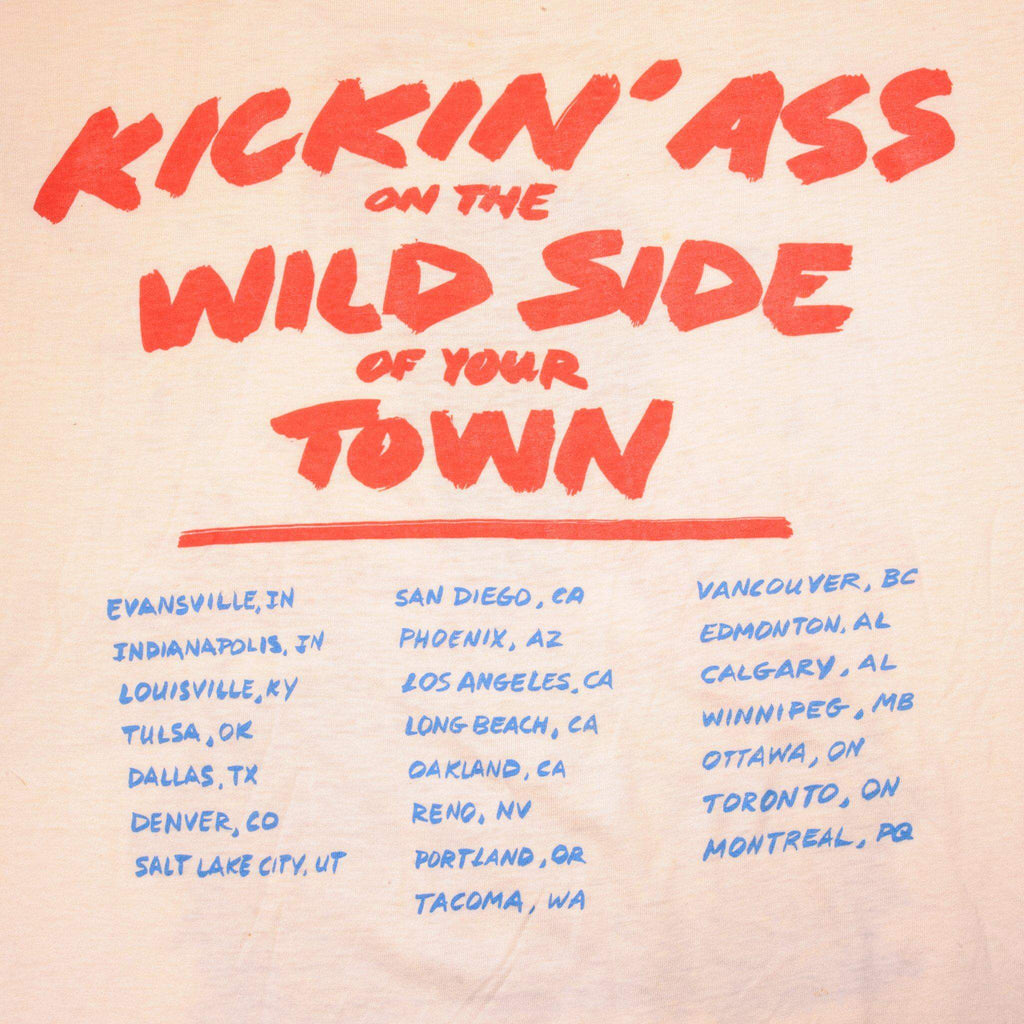 KICKIN' ASS
ON THE
WILD SIDE
OF YOUR
TOWN
EVANSVILLE, IN
INDIANAPOLIS, IN
LOUISVILLE, KY
TULSA, OK
DALLAS, TX
DENVER, CO
SALT LAKE CITY, UT
SAN DIEGO, CA
PHOENIX, AZ
LOS ANGELES, CA
LONG BEACH, CA
OAKLAND, CA
RENO, NV
PORTLAND, OR
TACOMA, WA
VANCOUVER, BC
EDMONTON, AL
CALGARY, AL
WINNIPEG, MB
OTTAWA, ON
TORONTO, ON
MONTREAL, PQ